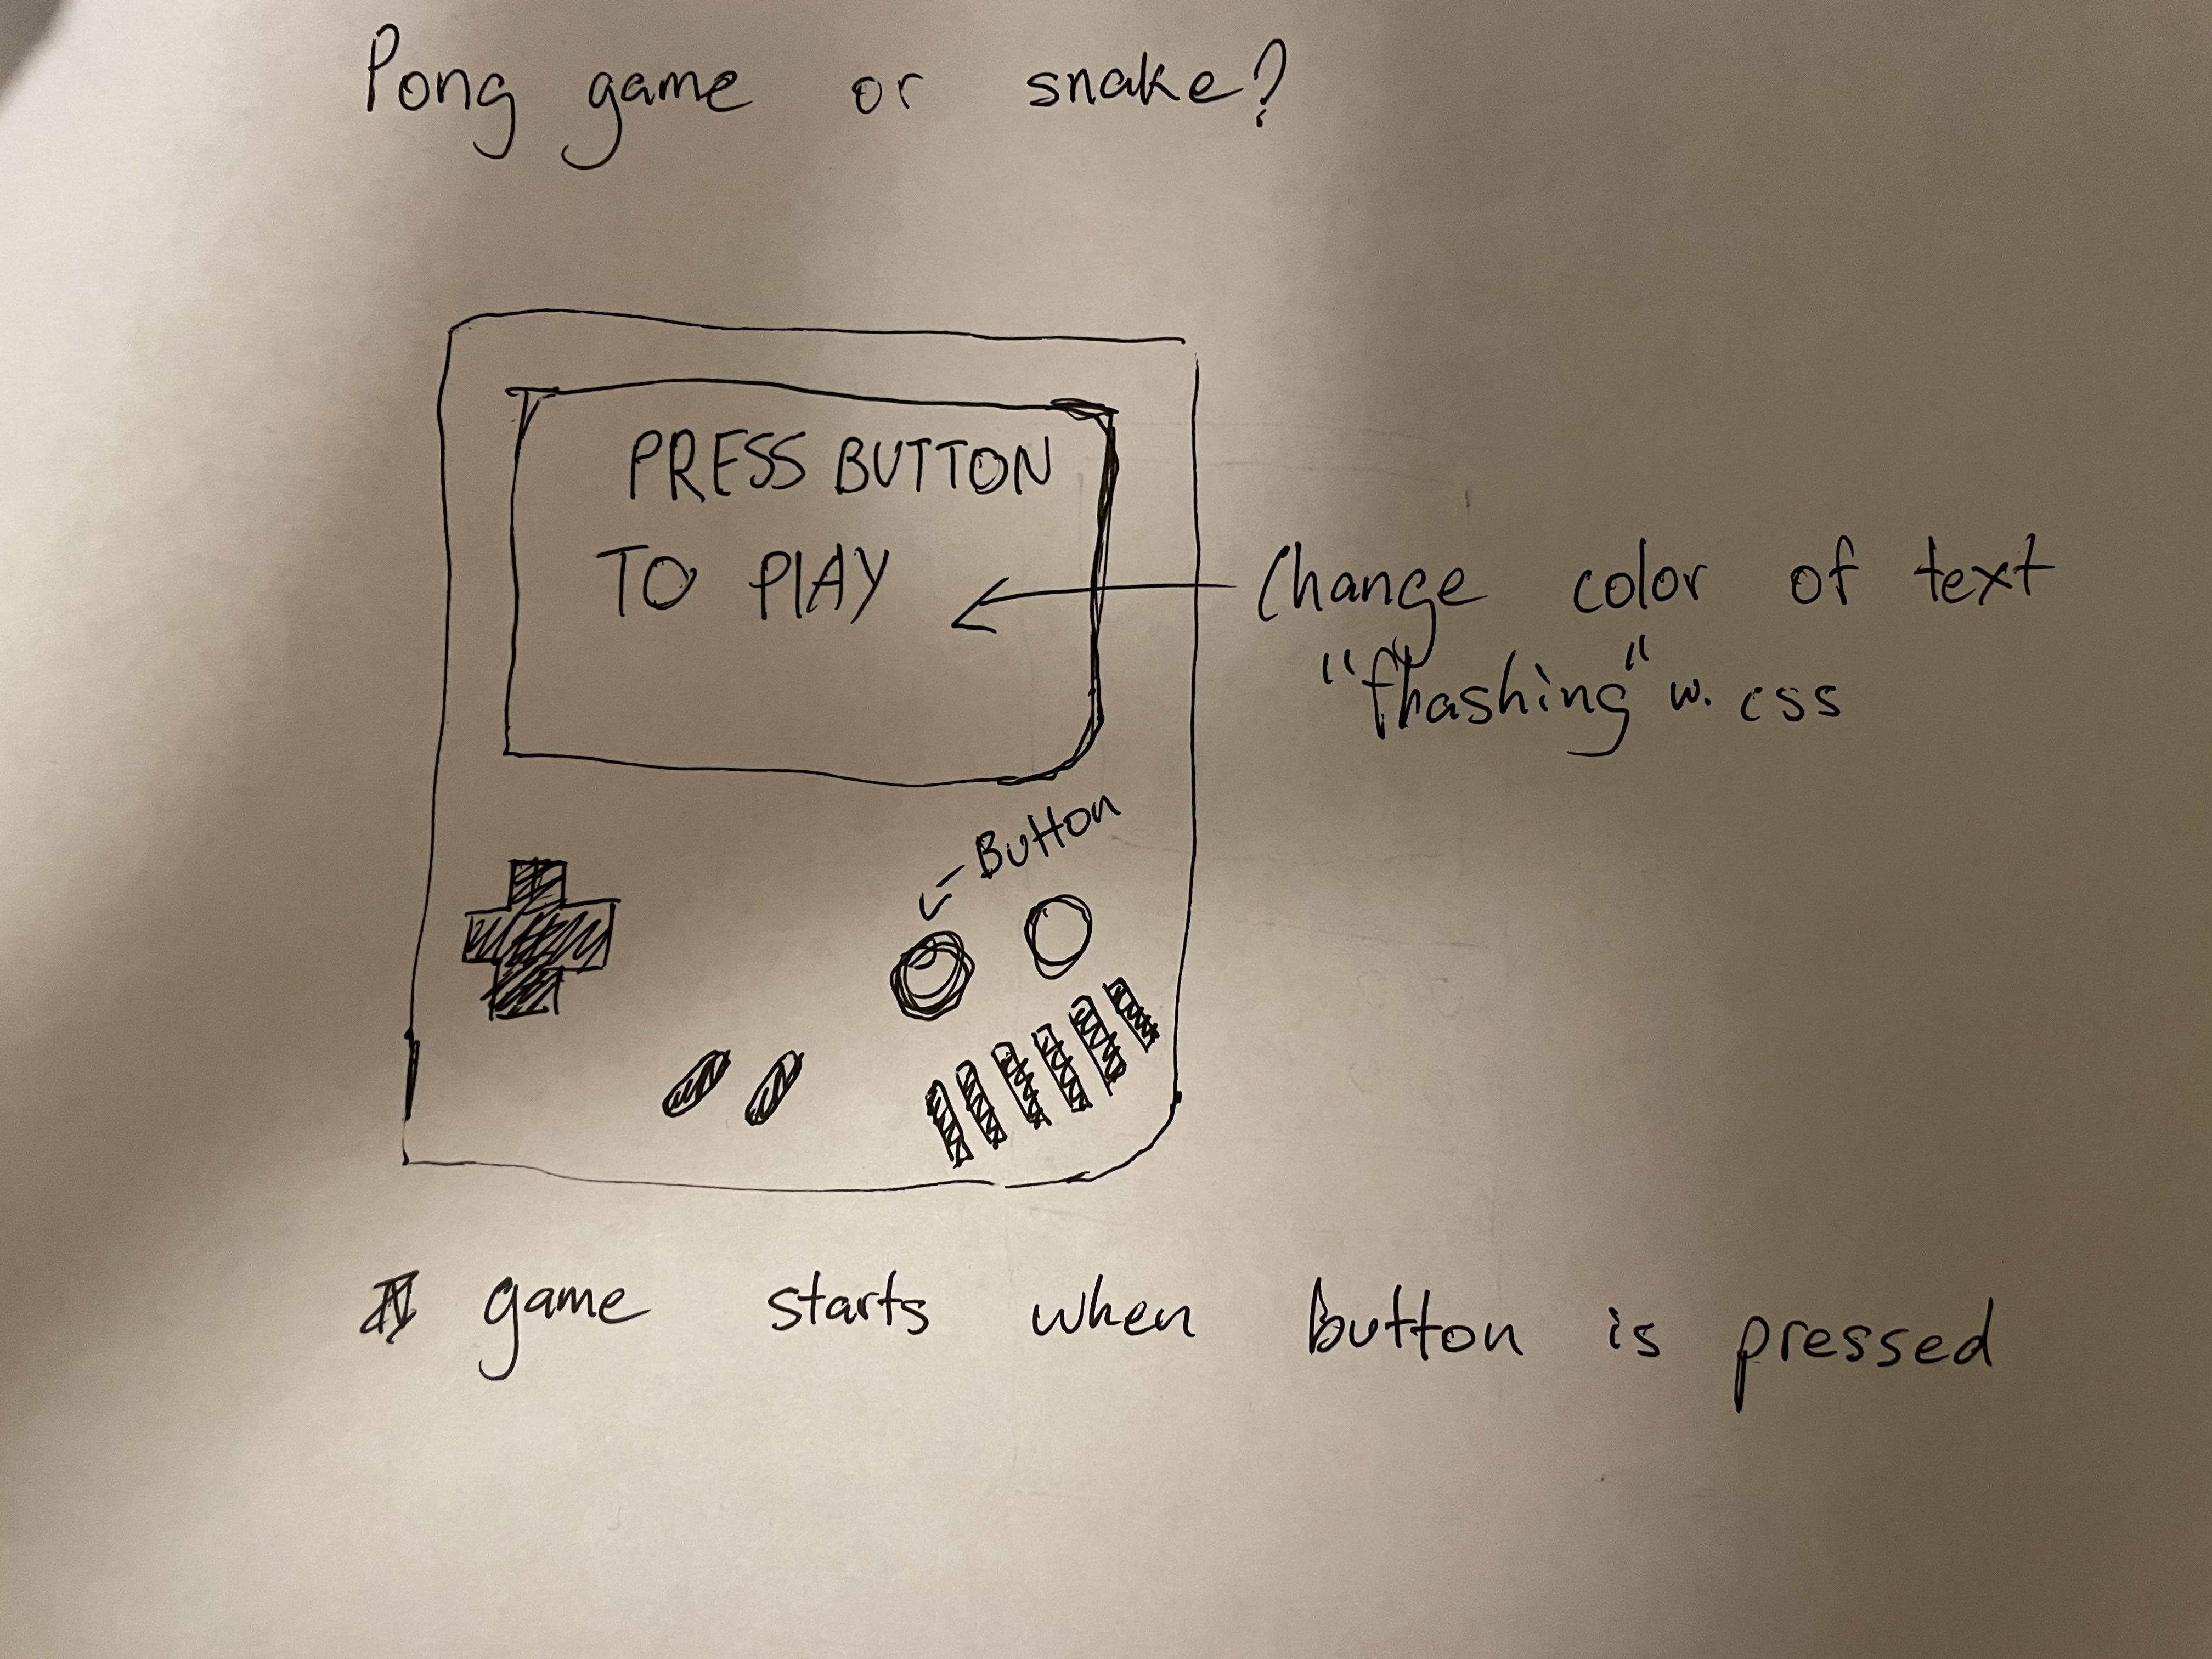 Pong game or snake?
PRESS BUTTON
TO PLAY
Change color of text
"flhashing" w. css
Button
game starts when button is pressed